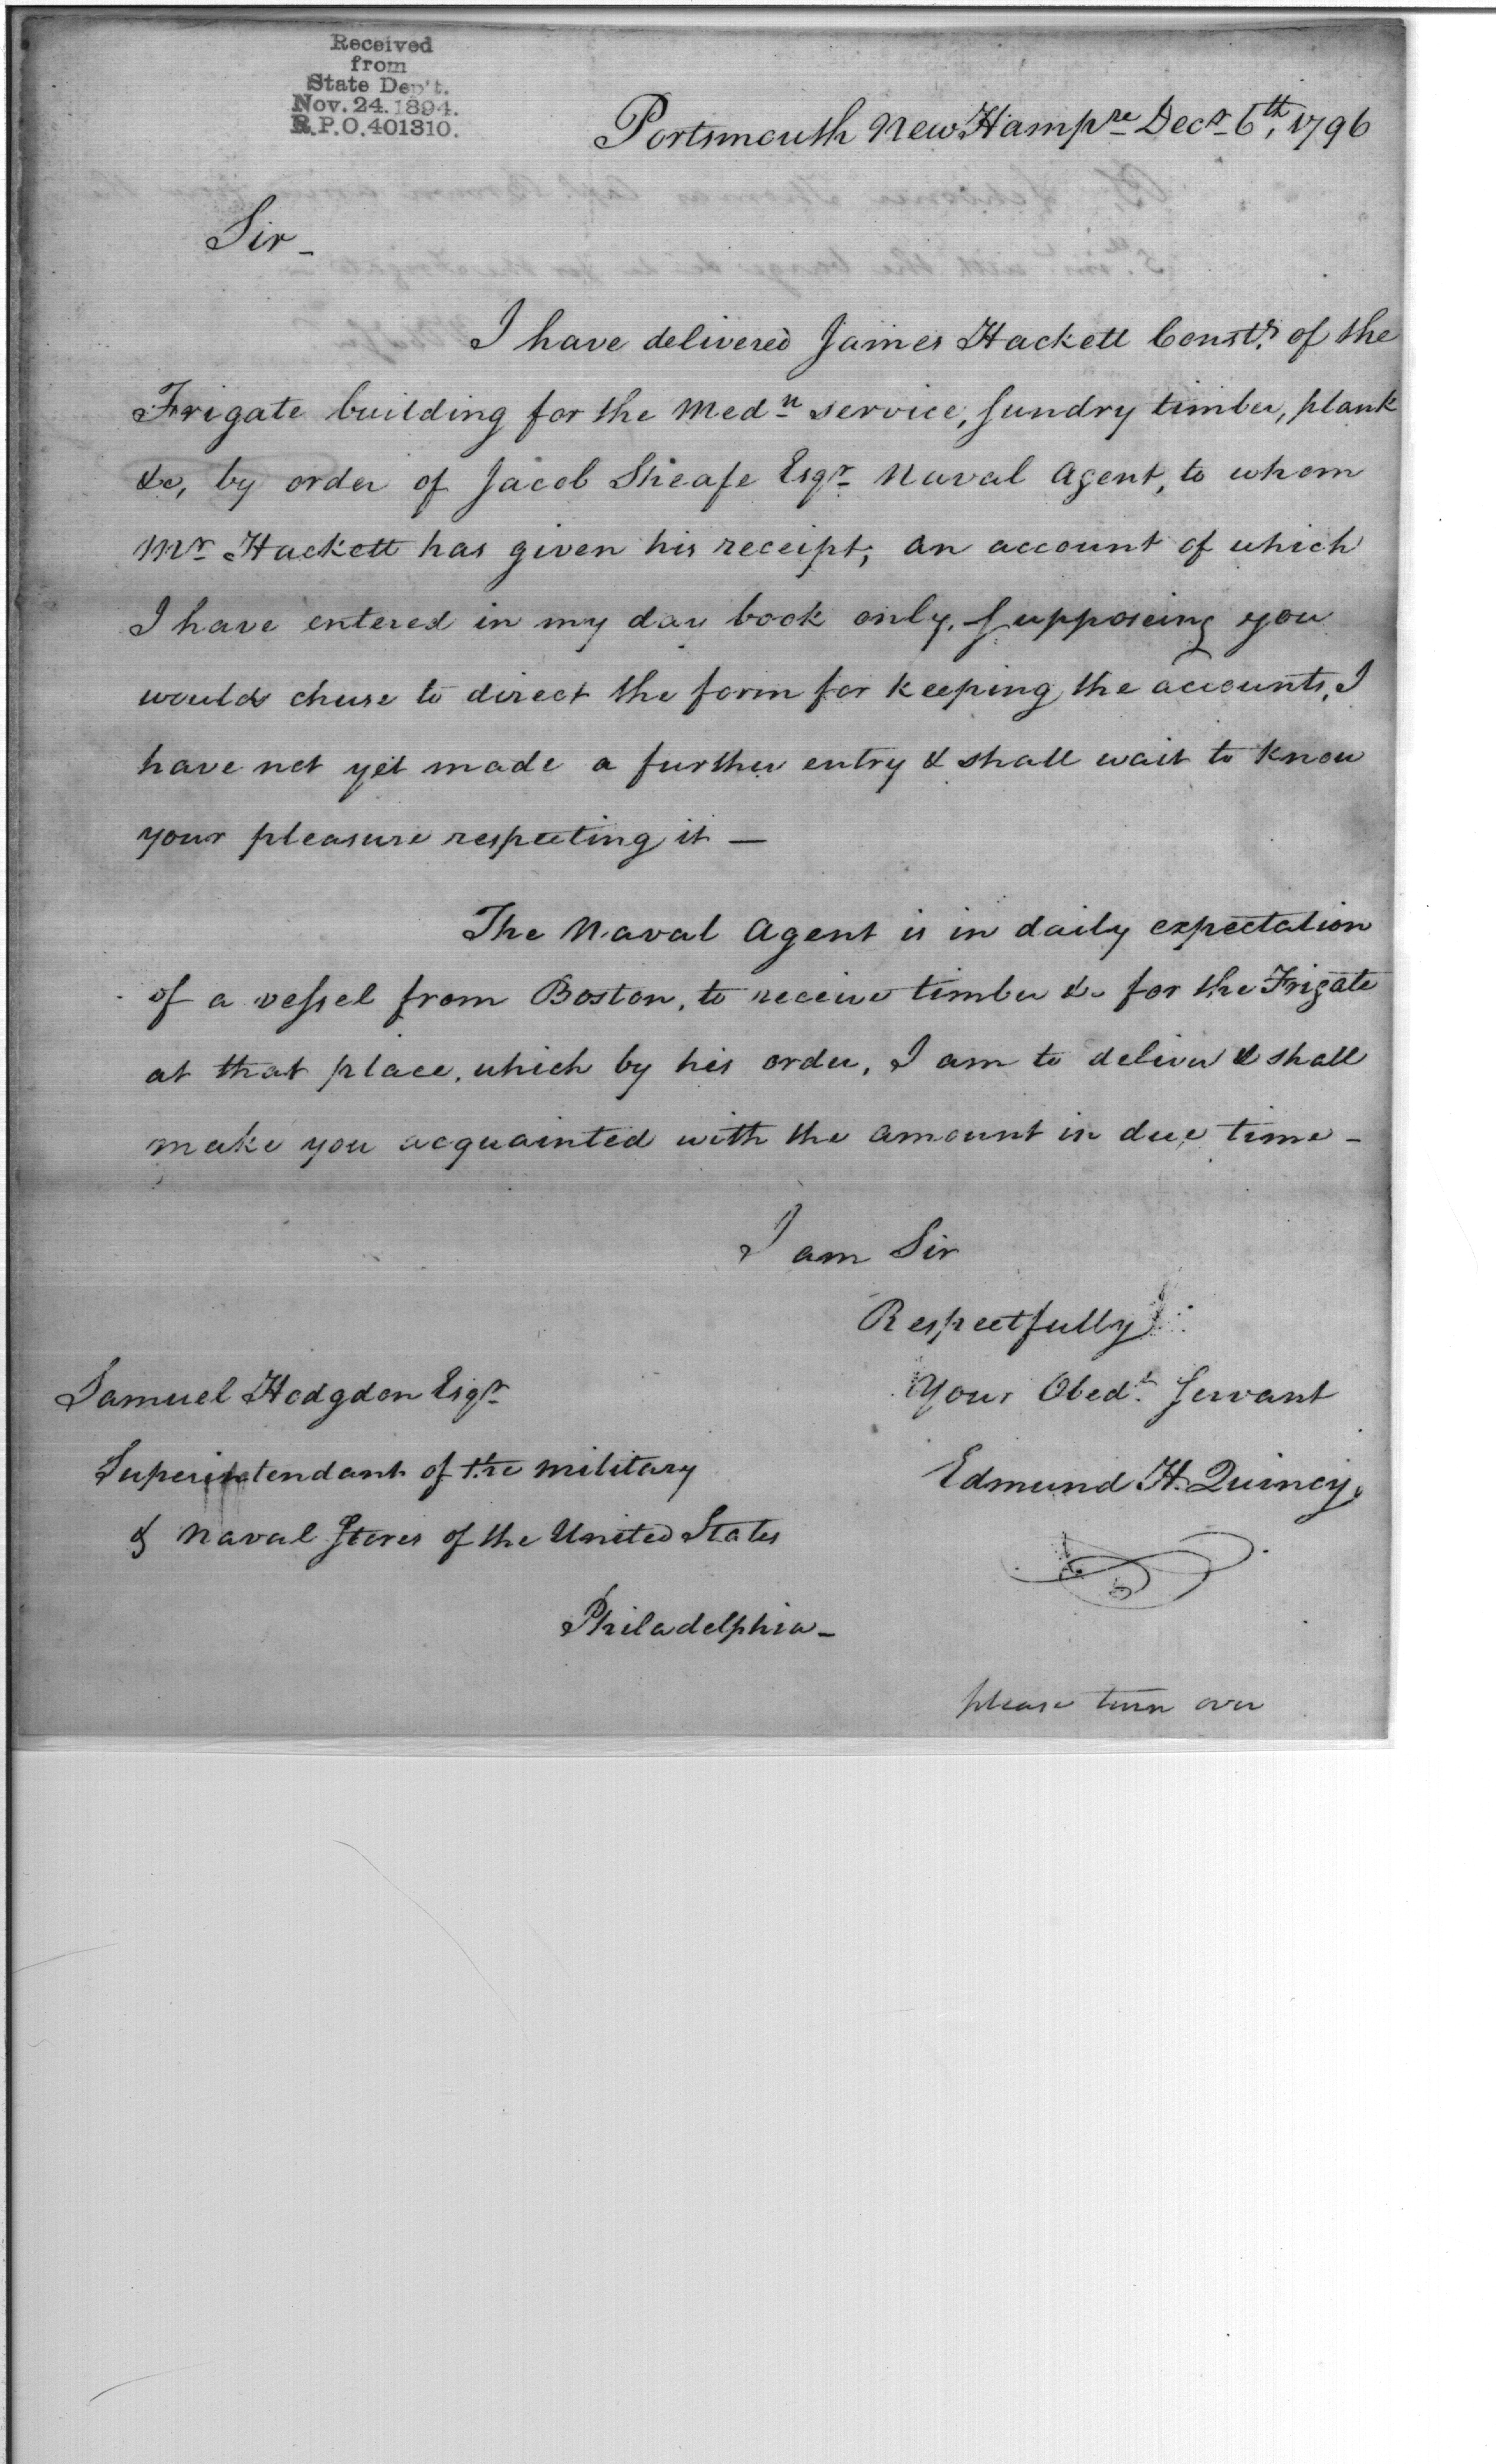 Received
from
State Dep't.
Nov. 24. 1894.
R.P.O. 401310.
Portsmouth New Hampre Decr 6th, 1796
Sir -
I have delivered James Hackett Constr. of the
Frigate building for the Medn service, sundry timber, plank
&c, by order of Jacob Sheafe Esqr Naval Agent, to whom
Mr Hackett has given his receipt; an account of which
I have entered in my day book only, supposeing you
would chuse to direct the form for keeping the accounts, I
have not yet made a further entry & shall wait to know
your pleasure respecting it —
The Naval Agent is in daily expectation
of a vessel from Boston, to receive timber &c for the Frigate
at that place, which by his order, I am to deliver & shall
make you acquainted with the amount in due time -
I am Sir
Respectfully
Your Obedt. Servant
Edmund H. Quincy.
Samuel Hodgdon Esqr
Superintendant of the military
& Naval Stores of the United States
Philadelphia -
please turn over